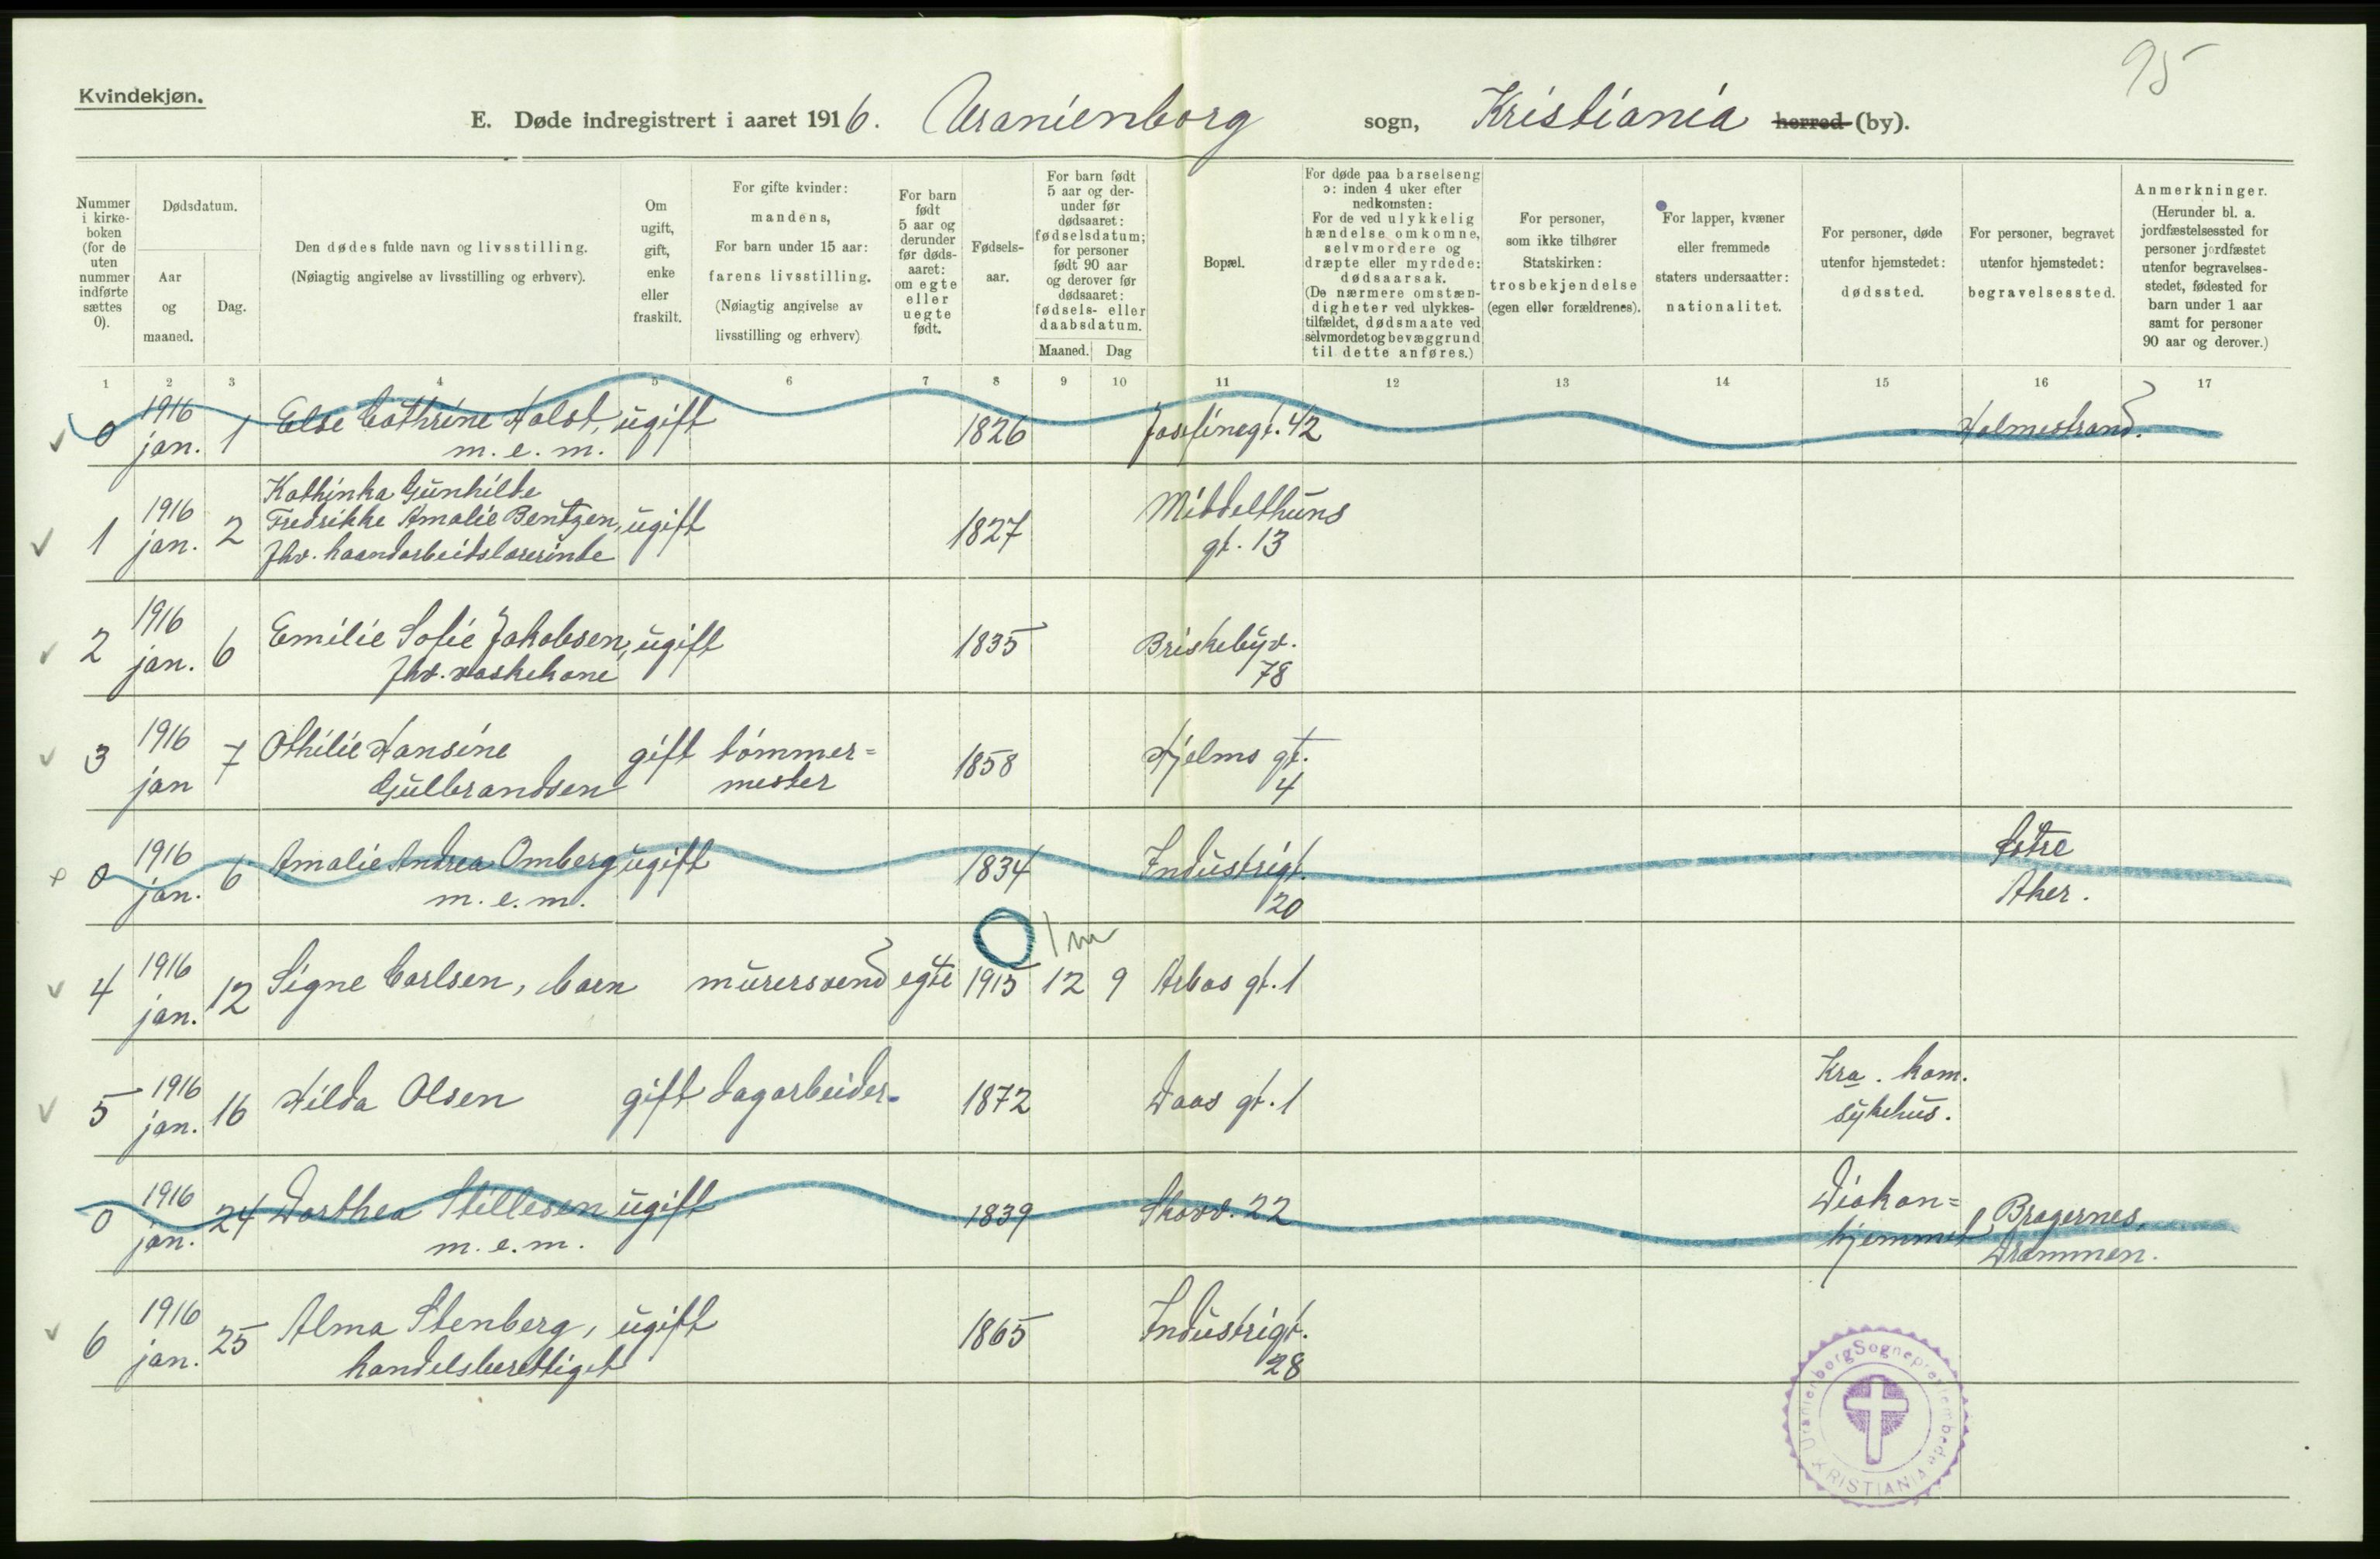 95
Kvindekjøn.
E. Døde indregistrert i aaret 1916. Uranienborg sogn, Kristiania herred (by).
Nummer
i kirke-
boken
(for de
uten
nummer
indførte
sættes
0).
Dødsdatum.
Aar
og
maaned.
Dag.
Den dødes fulde navn og livsstilling.
(Nøiagtig angivelse av livsstilling og erhverv).
Om
ugift,
gift,
enke
eller
fraskilt.
For gifte kvinder:
mandens,
For barn under 15 aar:
farens livsstilling.
(Nøiagtig angivelse av
livsstilling og erhverv)
For barn
født
5 aar og
derunder
før døds-
aaret:
om egte
eller
uegte
født.
Fødsels-
aar.
For barn født
5 aar og der-
under før
dødsaaret:
fødselsdatum;
for personer
født 90 aar
og derover før
dødsaaret:
fødsels- eller
daabsdatum.
Maaned. Dag
Bopæl.
For døde paa barselseng
ɔ: inden 4 uker efter
nedkomsten:
For de ved ulykkelig
hændelse omkomne,
selvmordere og
dræpte eller myrdede:
dødsaarsak.
(De nærmere omstæn-
digheter ved ulykkes-
tilfældet, dødsmaate ved
selvmordet og bevæggrund
til dette anføres.)
For personer,
som ikke tilhører
Statskirken:
trosbekjendelse
(egen eller forældrenes).
For lapper, kvæner
eller fremmede
staters undersaatter:
nationalitet.
For personer, døde
utenfor hjemstedet:
dødssted.
For personer, begravet
utenfor hjemstedet:
begravelsessted.
Anmerkninger.
(Herunder bl. a.
jordfæstelsessted for
personer jordfæstet
utenfor begravelses-
stedet, fødested for
barn under 1 aar
samt for personer
90 aar og derover.)
1 2 3 4 5 6 7 8 9 10 11 12 13 14 15 16 17
0 1916 jan. 1 Else Cathrine Holst, ugift 1826 Josefinegt. 42 Holmestrand.
m. e. m.
Kathinka Gunhilde
1 1916 jan. 2 Fredrikke Amalie Bentzen, ugift 1827 Middelthuns
fhv. haandarbeidslærerinde gt. 13
2 1916 jan. 6 Emilie Sofie Jakobsen, ugift 1835 Briskebyv.
fhv. vaskekone 78
3 1916 jan 7 Othilie Hansine gift tömmer= 1858 Hjelms gt.
Gulbrandsen mester 4
0 1916 jan. 6 Amalie Andrea Omberg ugift 1834 Industrigt. Östre
m. e. m. 20 Aker.
1 m
4 1916 jan. 12 Signe Carlsen, barn murersvend egte 1915 12 9 Arbos gt. 1
5 1916 jan. 16 Hilda Olsen gift dagarbeider 1872 Daas gt. 1 Kra. kom.
sykehus.
0 1916 jan. 24 Dorthea Stillesen ugift 1839 Skovv. 22 Diakon= Bragernes,
m. e. m. hjemmet Drammen.
6 1916 jan. 25 Alma Stenberg, ugift 1865 Industrigt.
handelsberettiget 28
Uranienborg Sogneprestembede
KRISTIANIA